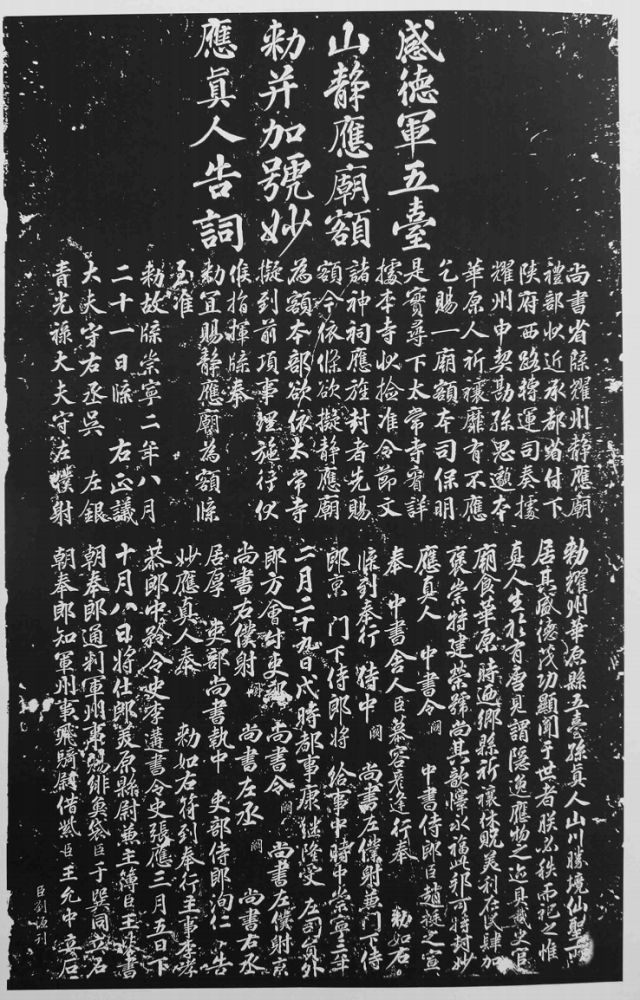 感德軍五臺
山靜應廟額
勅并加號妙
應真人告詞
尚書省牒耀州靜應廟
禮部狀近承都省付下
陝府西路轉運司奏據
耀州申契勘孫思邈本
華原人祈禳靡有不應
乞賜一廟額本司保明
是實尋下太常寺看詳
據本寺狀檢准令節文
諸神祠應旌封者先賜
額今依條欲擬靜應廟
為額本部欲依太常寺
擬到前項事理施行伏
候指揮牒奉
勅宜賜靜應廟為額牒
至准
勅故牒崇寧二年八月
二十一日牒 右正議
大夫守右丞吳 左銀
青光祿大夫守左僕射
勅耀州華原縣五臺孫真人山川勝境仙聖所
居其威德茂功顯聞于世者朕必秩而祀之惟
真人生於有唐見謂隱逸應物之迹具載史官
廟食華原時迺鄉縣祈禳休貺美利在民肆加
褒崇特建榮號尚其歆懌永福此邦可特封妙
應真人 中書令 闕 中書侍郎臣趙挺之宣
奉 中書舍人臣慕容彥逢行奉 勅如右
牒到奉行 侍中 闕 尚書左僕射兼門下侍
郎京 門下侍郎將 給事中時中崇寧三年
二月二十九日戌時都事康繼隆受 左司員外
郎方會付吏部 尚書令 闕 尚書左僕射京
尚書右僕射 闕 尚書左丞 闕 尚書右丞
居厚 吏部尚書執中 吏部侍郎詢仁 告
妙應真人奉 勅如右符到奉行主事李孝
恭郎中 令史李遘書令史張應三月五日下
十月八日將仕郎美原縣尉兼主簿臣王 書
朝奉郎通判軍州事賜緋魚袋臣于巽同立石
朝奉郎知軍州事飛騎尉借紫臣王允中立石
臣劉源刊